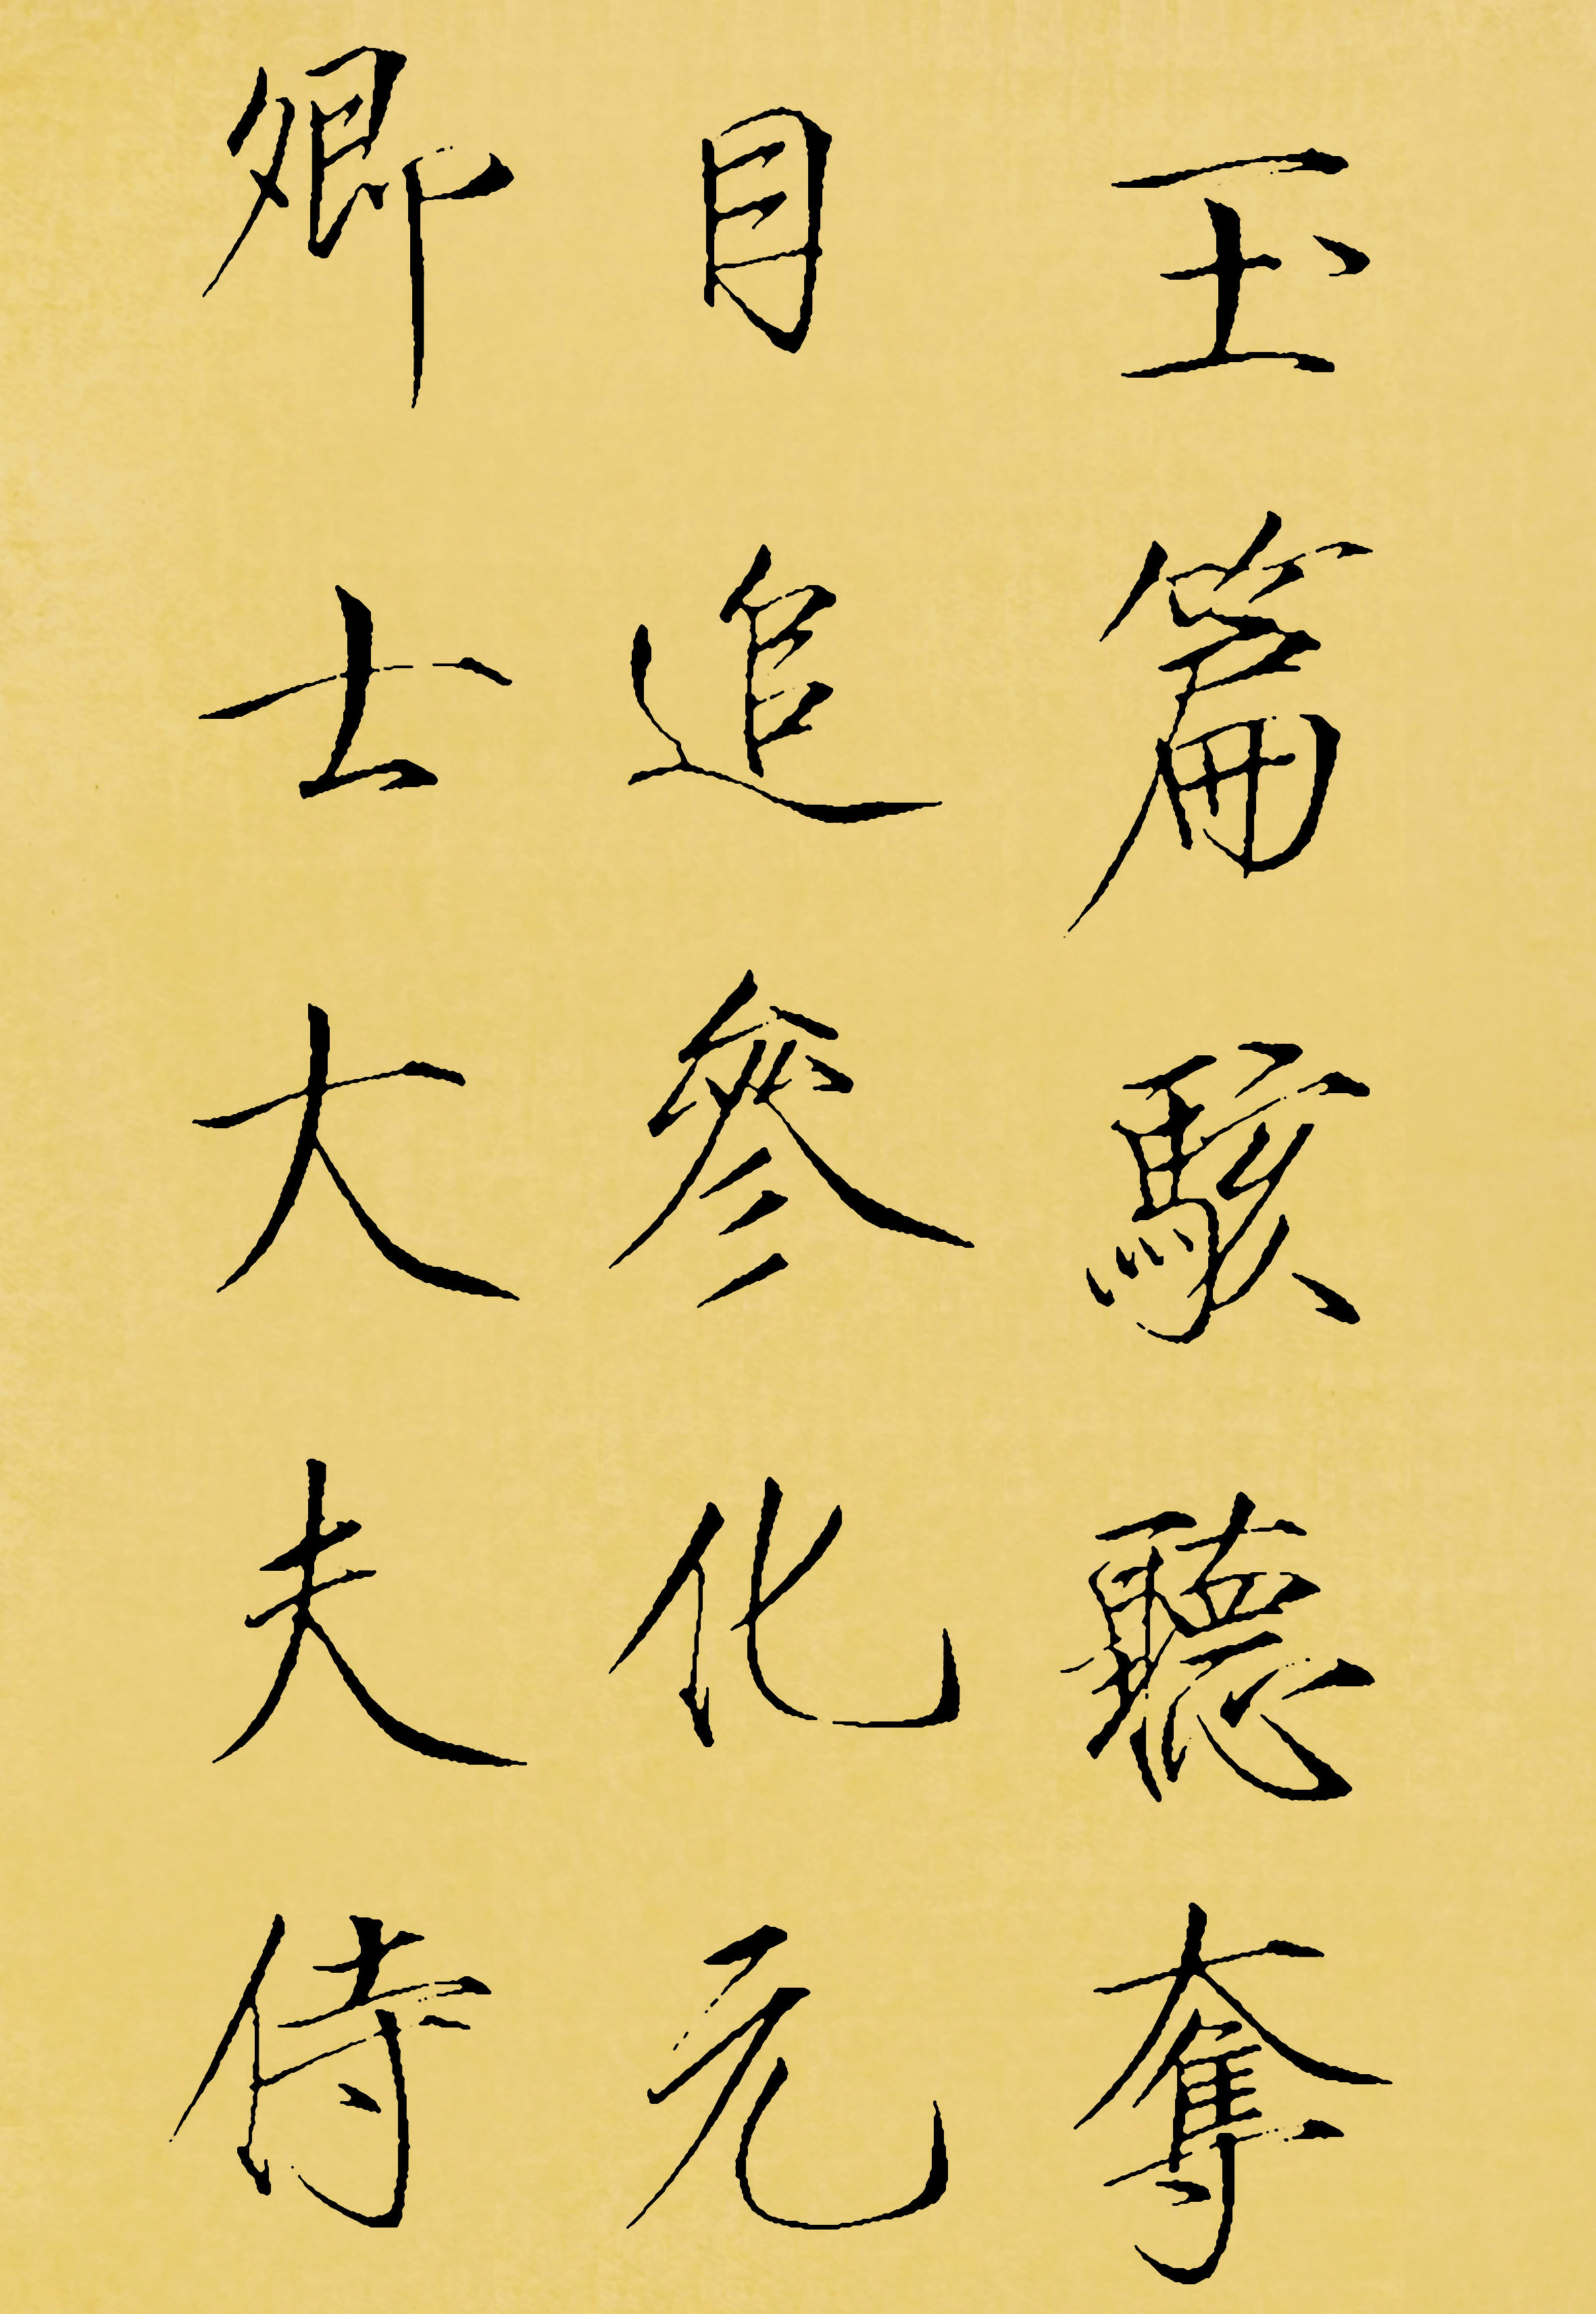 玉篇駭聽奪
目追參化元
卿士大夫侍